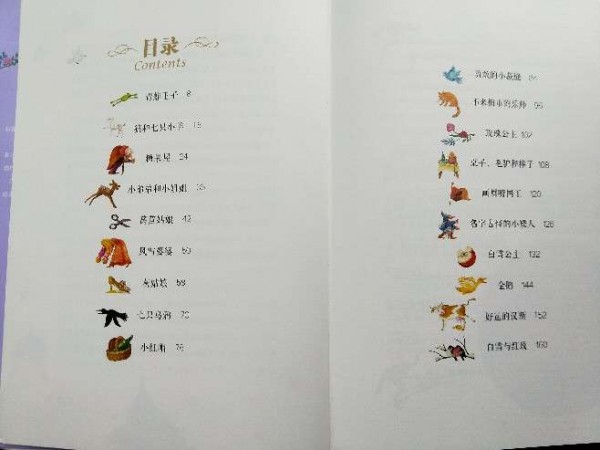 目录
Contents
青蛙王子 8
狼和七只小羊 15
糖果屋 24
小弟弟和小姐姐 35
莴苣姑娘 42
风雪婆婆 50
灰姑娘 58
七只乌鸦 70
小红帽 76
勇敢的小裁缝 84
不来梅市的乐师 96
玫瑰公主 102
桌子、毛驴和棒子 108
画眉嘴国王 120
名字古怪的小矮人 126
白雪公主 132
金鹅 144
好运的汉斯 152
白雪与红玫 160